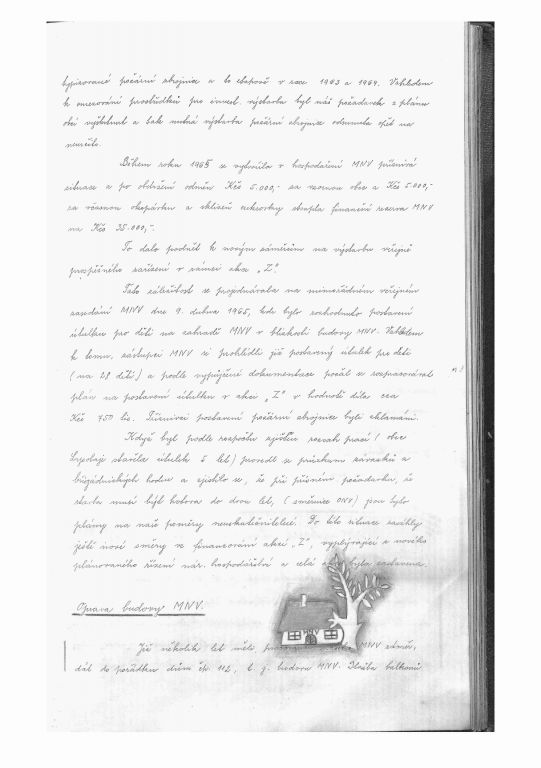 typisované požární zbrojnice a to etapově v roce 1963 a 1964. Vzhledem
k omezování prostředků pro invest. výstavbu byl náš požadavek z plánu
obcí vyškrtnut a tak nutná výstavba požární zbrojnice odsunuta opět na
neurčito.
Během roku 1965 se vytvořila v hospodaření MNV příznivá
situace a po obdržení odměn Kčs 5.000,- za vzornou obec a Kčs 5.000,-
za včasnou okopávku a sklizeň cukrovky stoupla finanční rezerva MNV
na Kčs 35.000,-.
To dalo podnět k novým záměrům na výstavbu veřejně
prospěšného zařízení v rámci akce „Z".
Tato záležitost se projednávala na mimořádném veřejném
zasedání MNV dne 9. dubna 1965, kde bylo rozhodnuto postavení
útulku pro děti na zahradě MNV v blízkosti budovy MNV. Vzhledem
k tomu, zástupci MNV si prohlédli již postavený útulek pro děti
(na 28 dětí) a podle vypůjčené dokumentace počal se rozpracovávat
plán na postavení útulku v akci „Z" v hodnotě díla cca
Kčs 750 tis. Příznivci postavení požární zbrojnice byli zklamáni.
Když byl podle rozpočtu zjištěn rozsah prací (obce
běžně stavěla útulek 5 let) provedl se průzkum závazků a
brigádnických hodin a zjistilo se, že při přísném požadavku, že
stavba musí být hotova do dvou let, (směrnice ONV) jsou tyto
plány na naše poměry neuskutečnitelné. Do této situace zasáhly
ještě nové směry ve financování akcí „Z", vyplývající z nového
plánovaného řízení nár. hospodářství a celá byla zastavena.
Oprava budovy MNV.
Již několik let měli MNV záměr,
dát do pořádku dům čp. 112, t. j. budovu MNV. Stavba balkonů
MNV